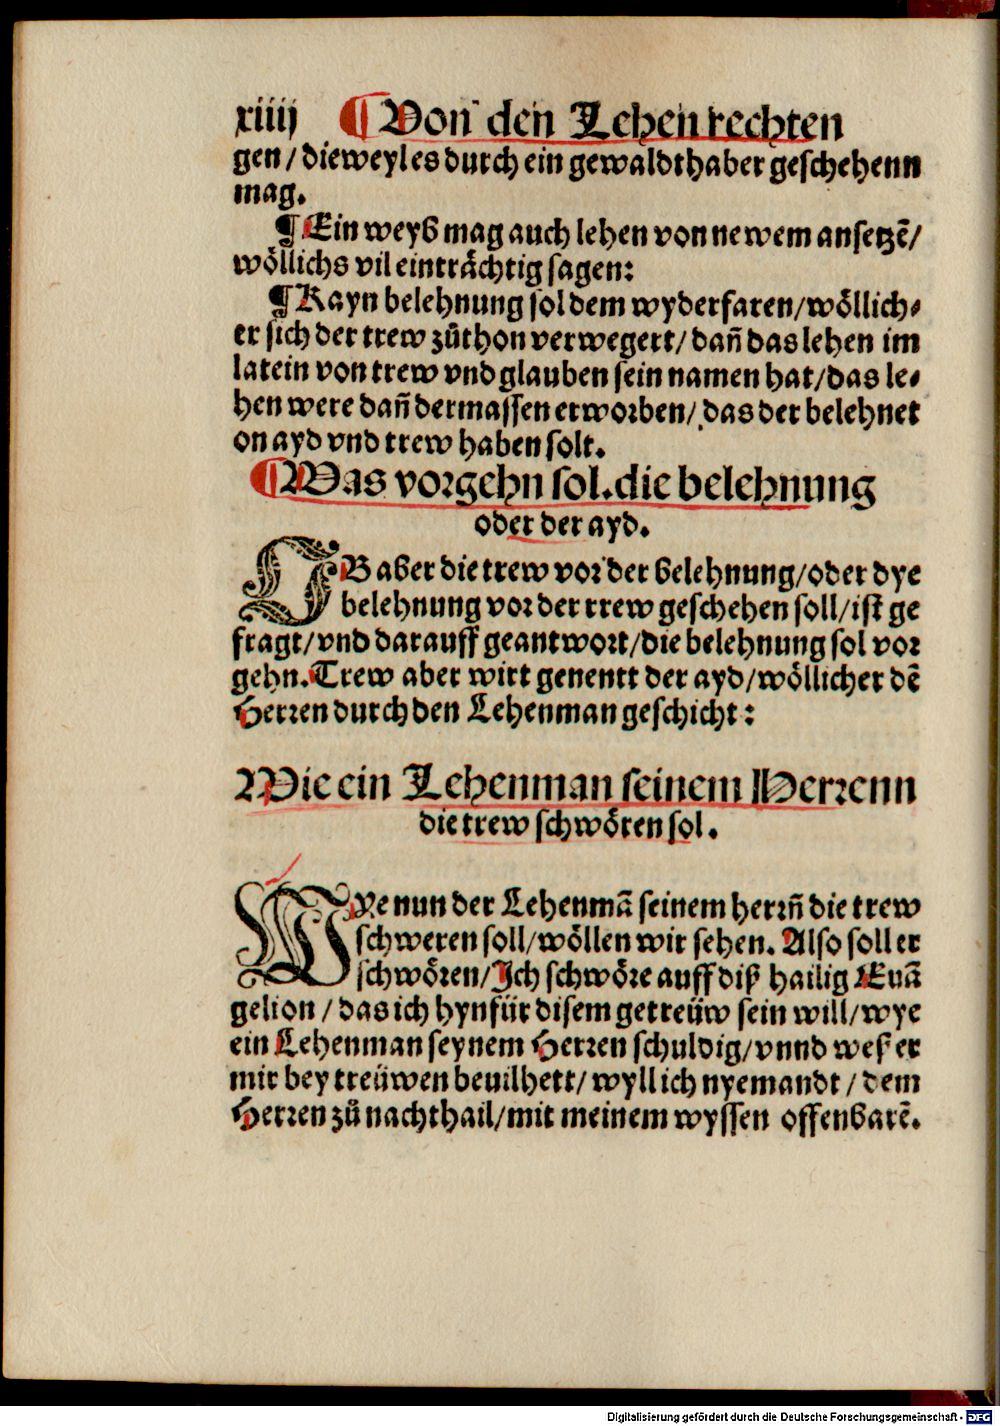 xiiij ¶ Von den Lehen rechten
gen / dieweyl es durch ein gewaldthaber geschehenn
mag.
¶ Ein weyß mag auch lehen von newem ansetzẽ/
wöllichs vil einträchtig sagen:
¶ Kayn belehnung sol dem wyderfaren/wöllich⸗
er sich der trew zůthon verwegert/ dañ das lehen im
latein von trew vnd glauben sein namen hat/das le⸗
hen were dañ dermassen erworben/ das der belehnet
on ayd vnd trew haben solt.
¶ Was vorgehn sol.die belehnung
oder der ayd.
OB aber die trew vor der belehnung/oder dye
belehnung vor der trew geschehen soll/ist ge
fragt/vnd darauff geantwort/die belehnung sol vor
gehn.Trew aber wirt genentt der ayd/wöllicher dẽ
Herren durch den Lehenman geschicht:
Wie ein Lehenman seinem Herrenn
die trew schwören sol.
WYe nun der Lehenmã seinem herrñ die trew
schweren soll/wöllen wir sehen. Also soll er
schwören/Ich schwöre auff diß hailig Euã
gelion / das ich hynfür disem getreüw sein will/wye
ein Lehenman seynem Herren schuldig/vnnd weß er
mir bey treüwen beuilhett/wyll ich nyemandt / dem
Herren zů nachthail/mit meinem wyssen offenbarẽ.
Digitalisierung gefördert durch die Deutsche Forschungsgemeinschaft - DFG